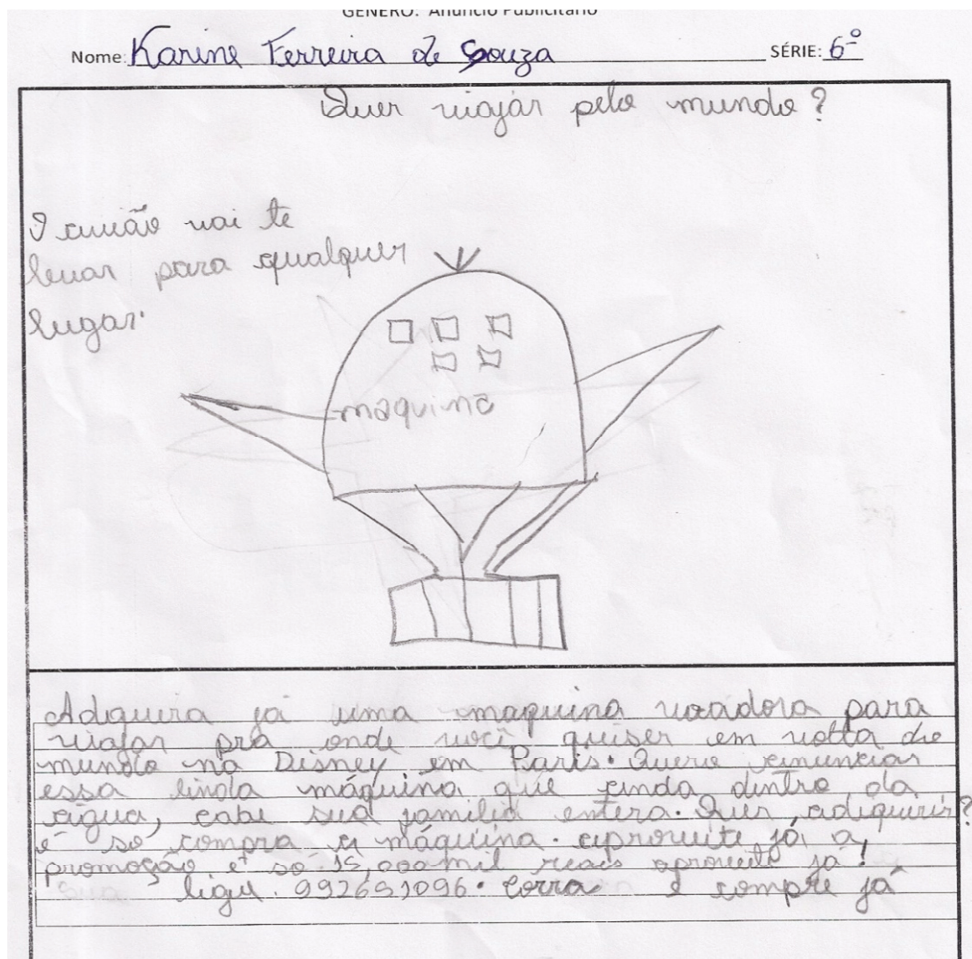 GÊNERO: Anúncio Publicitário
Nome: Karine Ferreira de Souza SÉRIE: 6º
Quer viajar pelo mundo?
O avião vai te
levar para qualquer
lugar.
maquina
Adquira já uma maquina voadora para
viajar pra onde você quiser em volta do
mundo na Disney em Paris. Quero anunciar
essa linda máquina que anda dentro da
água, cabe sua familia entera. Quer adiquirir?
é só compra a máquina. aproveite já a,
promoção é só 15,000 mil reais aproveite já!
ligue. 992651096. Corra e compre já